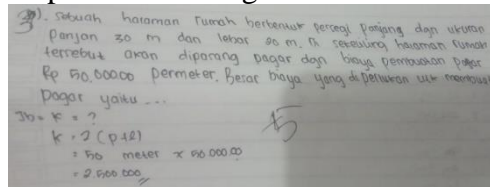 3). Sebuah halaman rumah berbentuk persegi panjang dgn ukuran
panjan 30 m dan lebar 20 m. Di sekeliling halaman rumah
tersebut akan dipasang pagar dgn biaya pembuatan pagar
Rp 50.000.00 permeter. Besar biaya yang diperlukan utk membuat
pagar yaitu ...
Jb = K = ?
K = 2 (p+l)
= 50 meter x 50.000.00
= 2.500.000,,